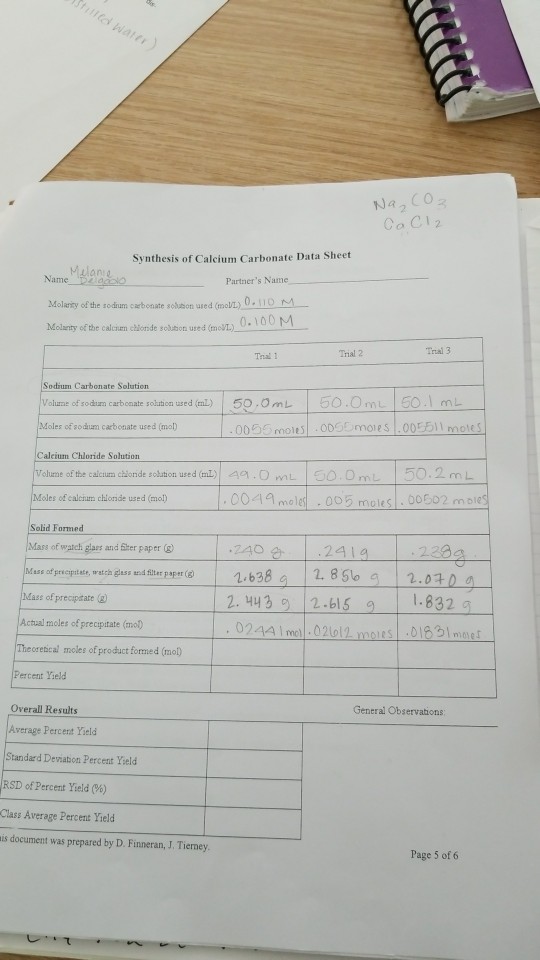 distilled water)
Na₂CO₃
CaCl₂
Synthesis of Calcium Carbonate Data Sheet
Name Melanie Delgado Partner's Name
Molarity of the sodium carbonate solution used (mol/L) 0.110 M
Molarity of the calcium chloride solution used (mol/L) 0.100 M
Trial 1 Trial 2 Trial 3
Sodium Carbonate Solution
Volume of sodium carbonate solution used (mL) 50.0mL 50.0mL 50.1 mL
Moles of sodium carbonate used (mol) .0055 moles .0055 moles .005511 moles
Calcium Chloride Solution
Volume of the calcium chloride solution used (mL) 49.0 mL 50.0mL 50.2mL
Moles of calcium chloride used (mol) .0049 moles .005 moles .00502 moles
Solid Formed
Mass of watch glass and filter paper (g) .240 g .241g .238g.
Mass of precipitate, watch glass and filter paper (g) 2.638 g 2.856 g 2.070 g
Mass of precipitate (g) 2.443 g 2.615 g 1.832 g
Actual moles of precipitate (mol) .02441 mol .02612 moles .01831 moles
Theoretical moles of product formed (mol)
Percent Yield
Overall Results General Observations:
Average Percent Yield
Standard Deviation Percent Yield
RSD of Percent Yield (%)
Class Average Percent Yield
is document was prepared by D. Finneran, J. Tierney.
Page 5 of 6